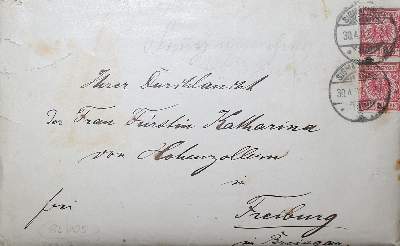 30.4.
30.4.
Ihrer Durchlaucht
der Frau Fürstin Katharina
von Hohenzollern
in
frei
Freiburg
in Breisgau